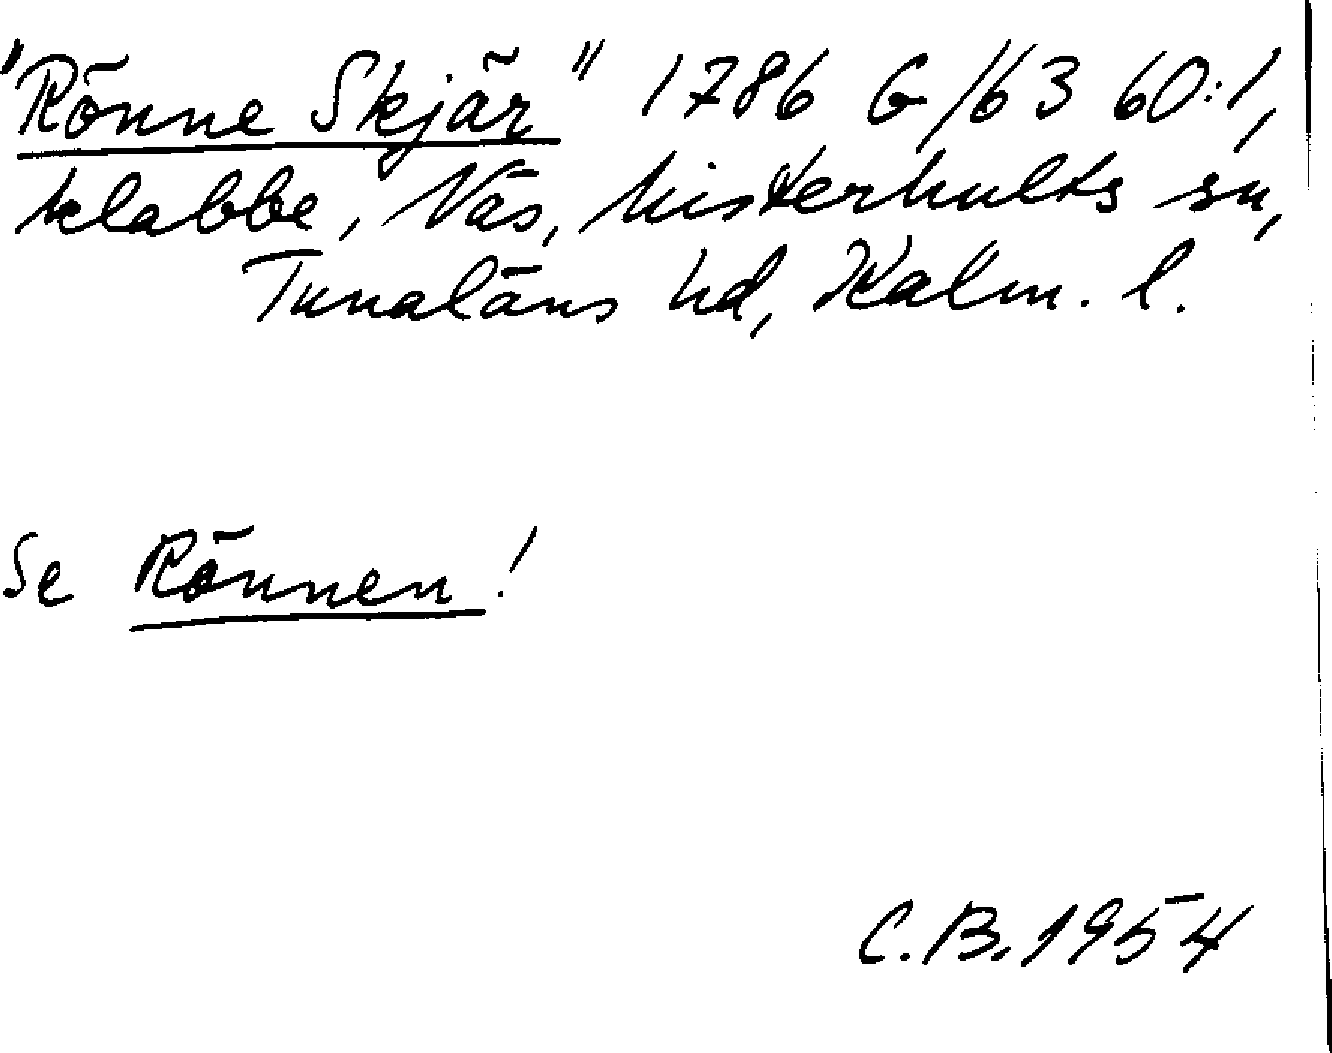 "Rönne Skjär" 1786 G/63 60:1,
klabbe, Näs, Misterhults sn,
Tunaläns hd, Kalm. l.
Se Rönnen!
C.B. 1954